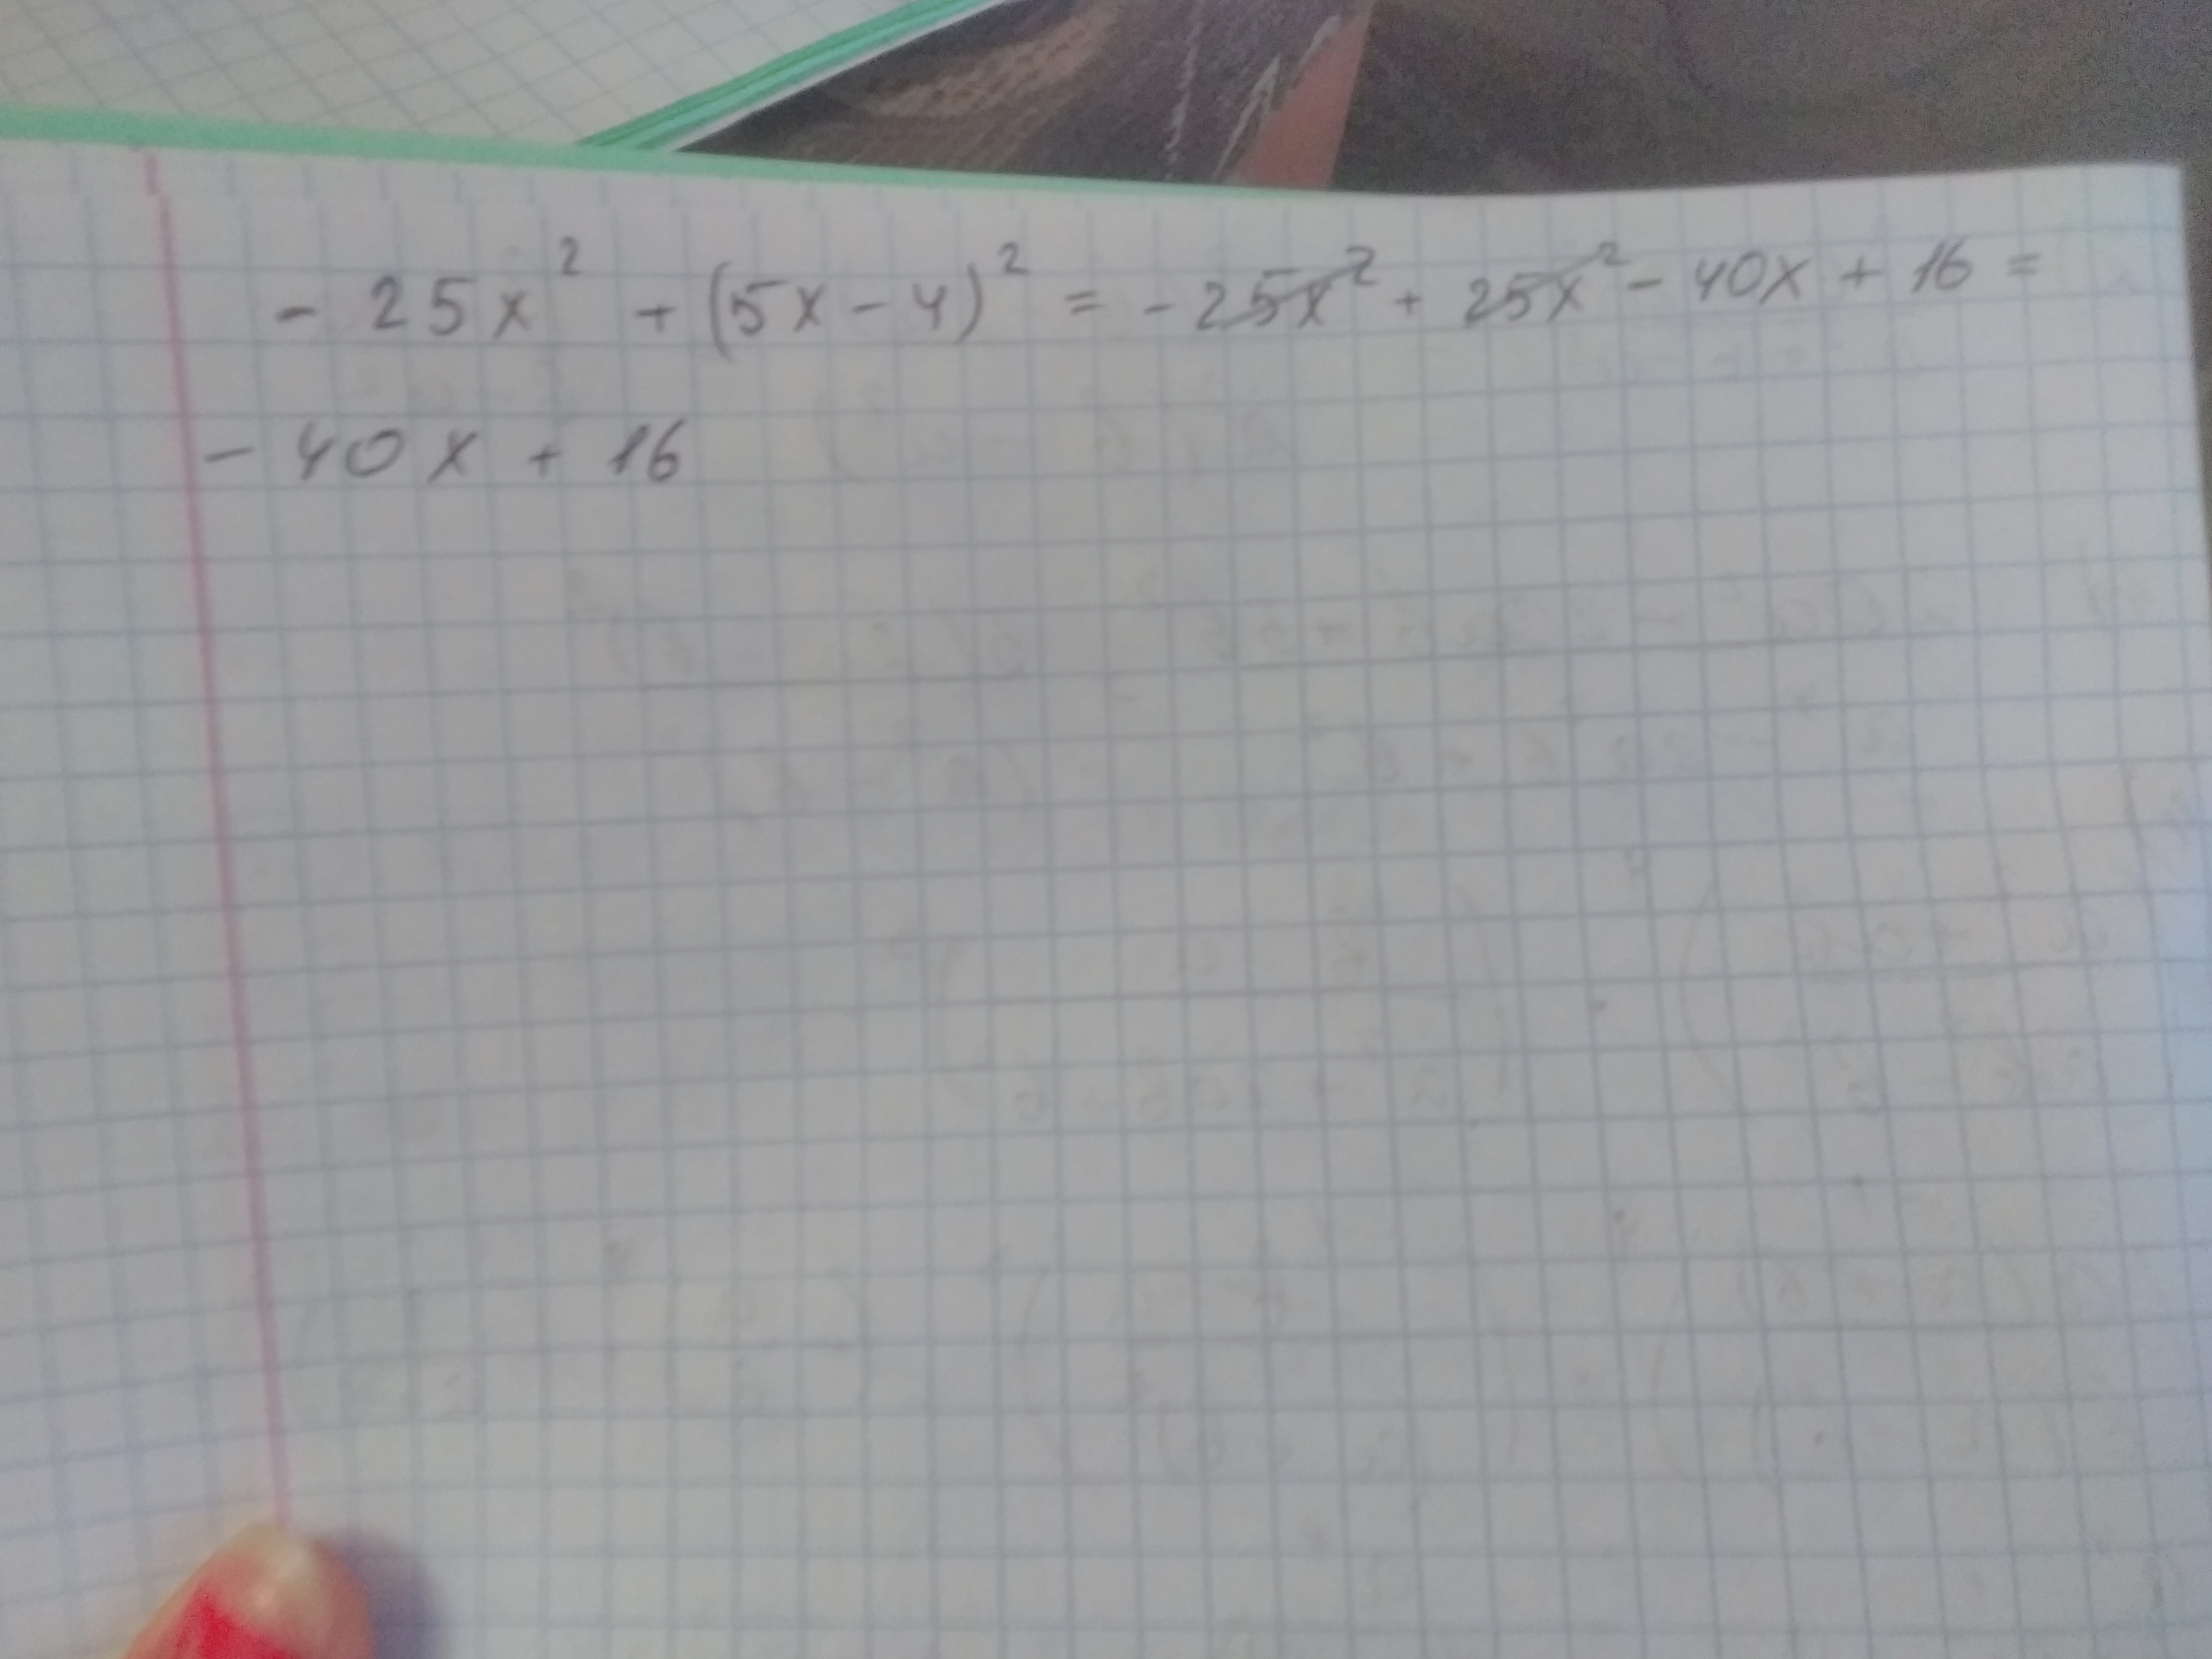 - 25x² + (5x - 4)² = - 25x² + 25x² - 40x + 16 =
- 40x + 16